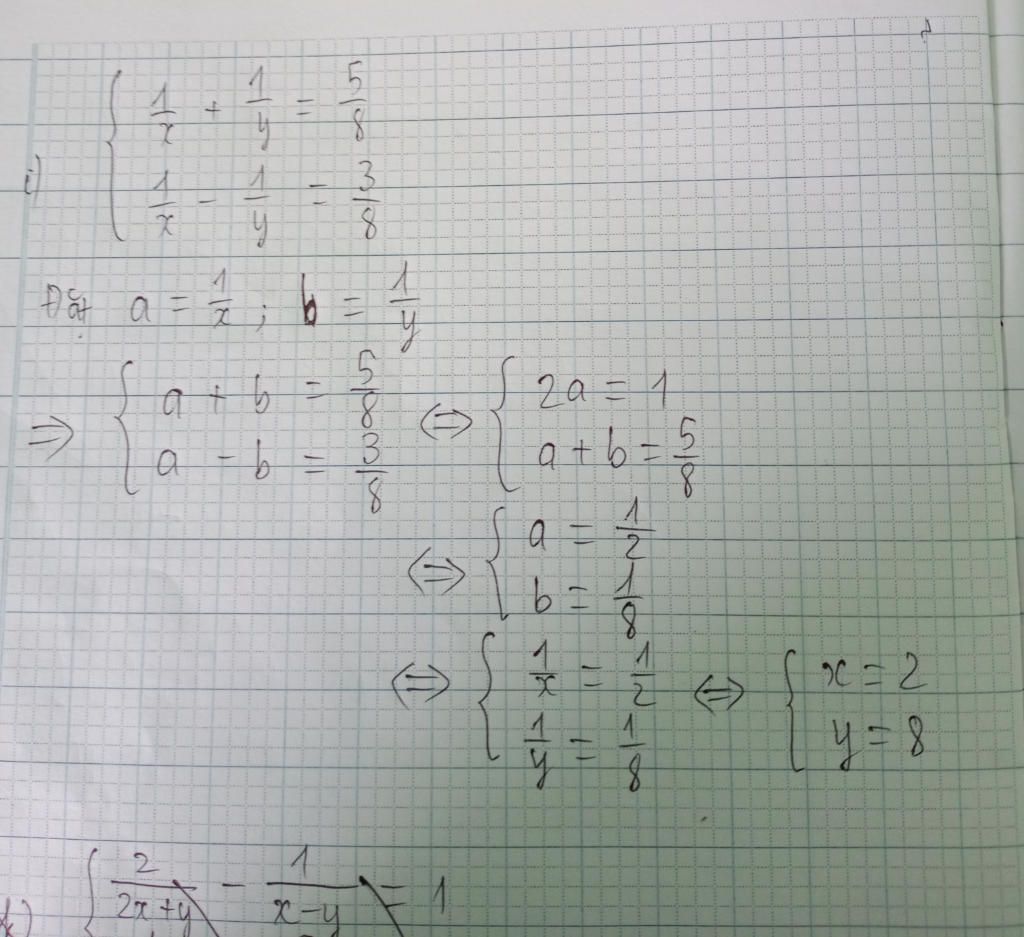 i) { 1/x + 1/y = 5/8
1/x - 1/y = 3/8
Đặt a = 1/x ; b = 1/y
⇒ { a + b = 5/8 ⇔ { 2a = 1
a - b = 3/8 a + b = 5/8
⇔ { a = 1/2
b = 1/8
⇔ { 1/x = 1/2 ⇔ { x = 2
1/y = 1/8 y = 8
{ 2/(2x+y) - 1/(x-y) = 1